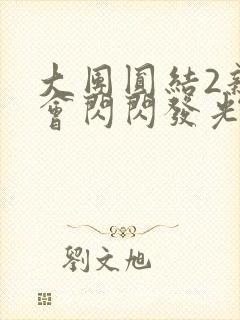 大團圓結2新
會閃閃發光
劉文旭